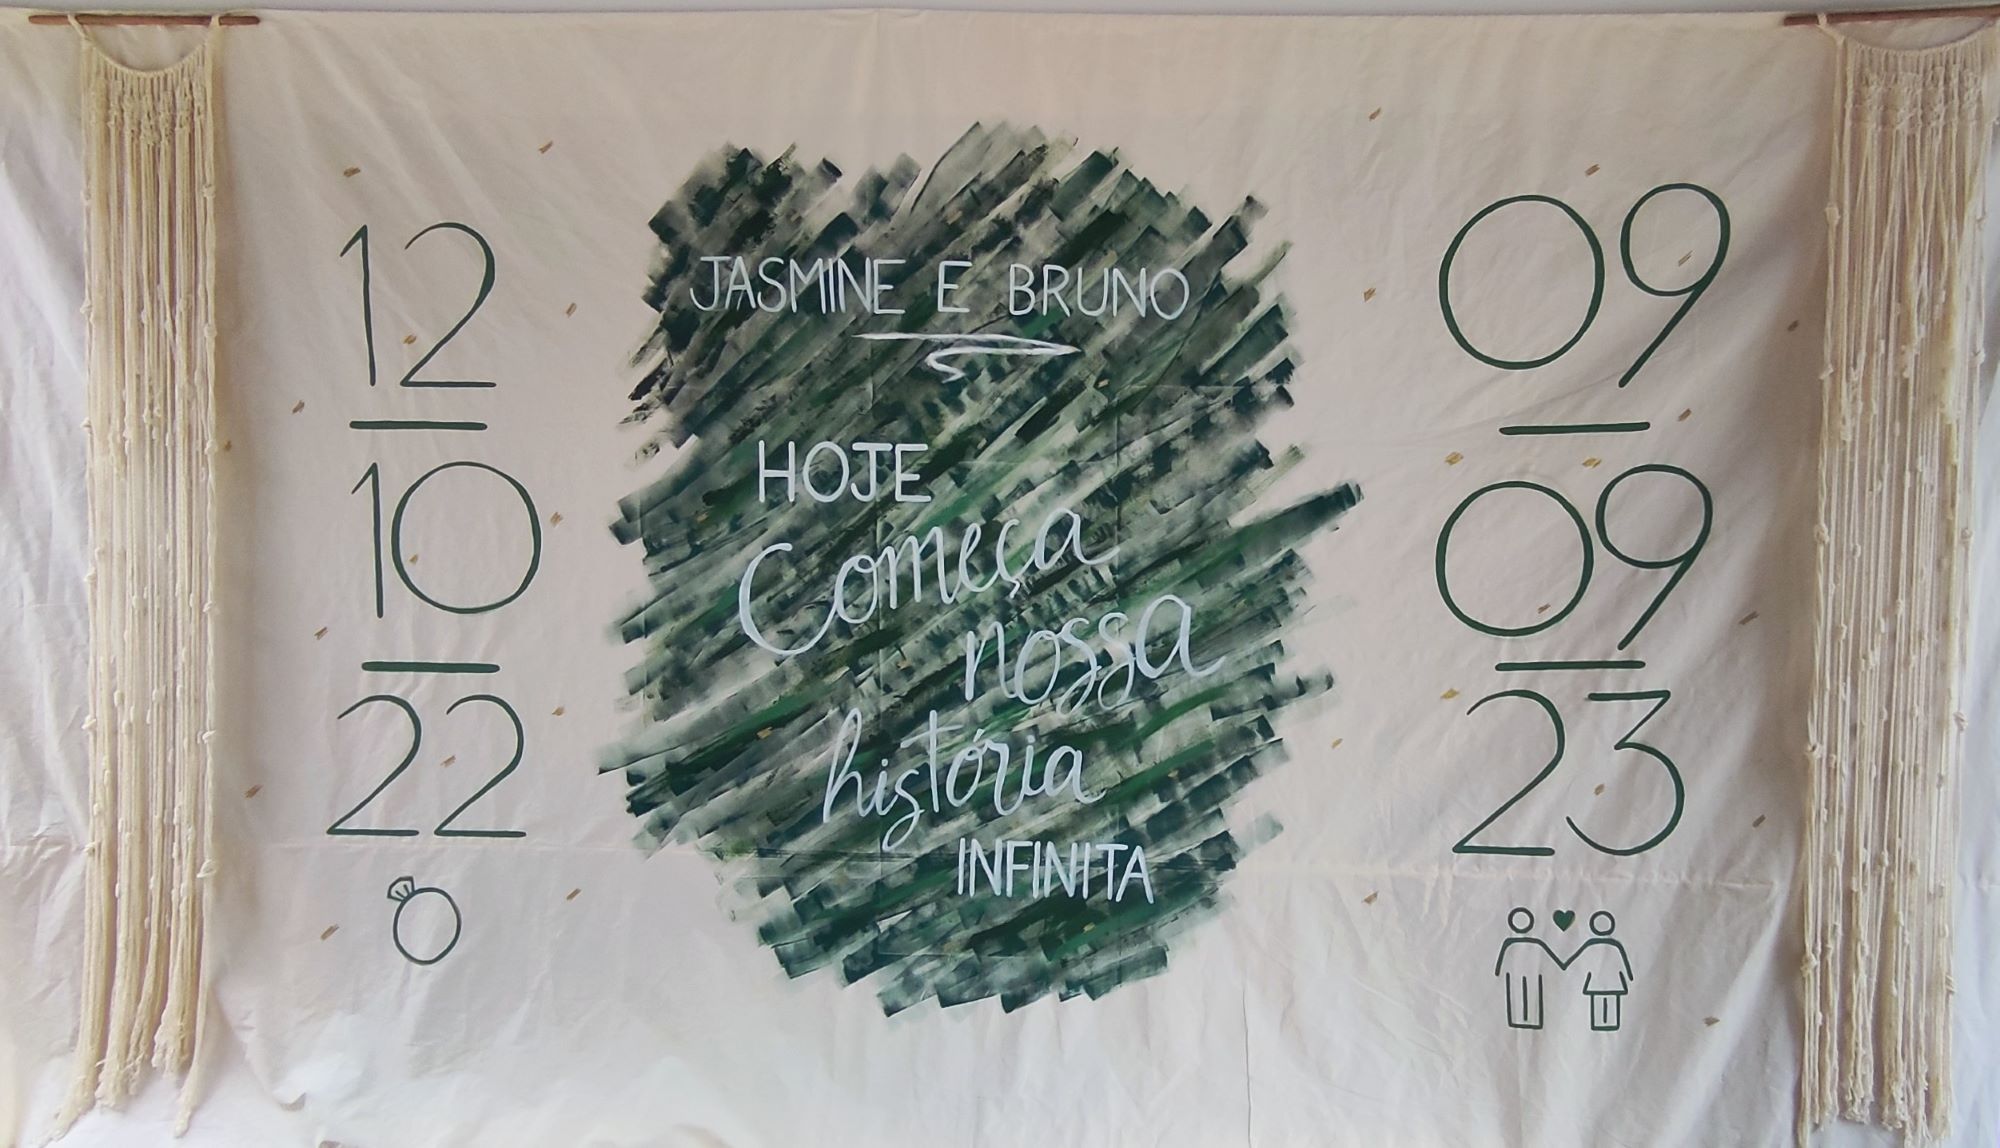 12
10
22
JASMINE E BRUNO
HOJE
Começa
nossa
história
INFINITA
09
09
23